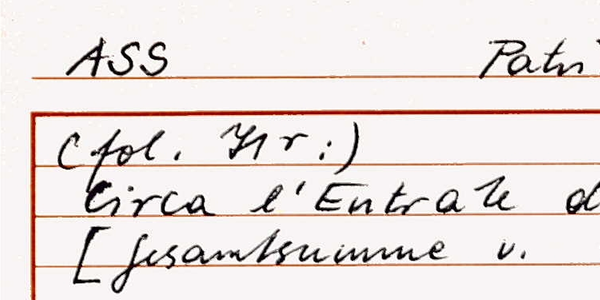 ASS Patri
(fol. 41r:)
Circa l'Entrate d
[Gesamtsumme v.